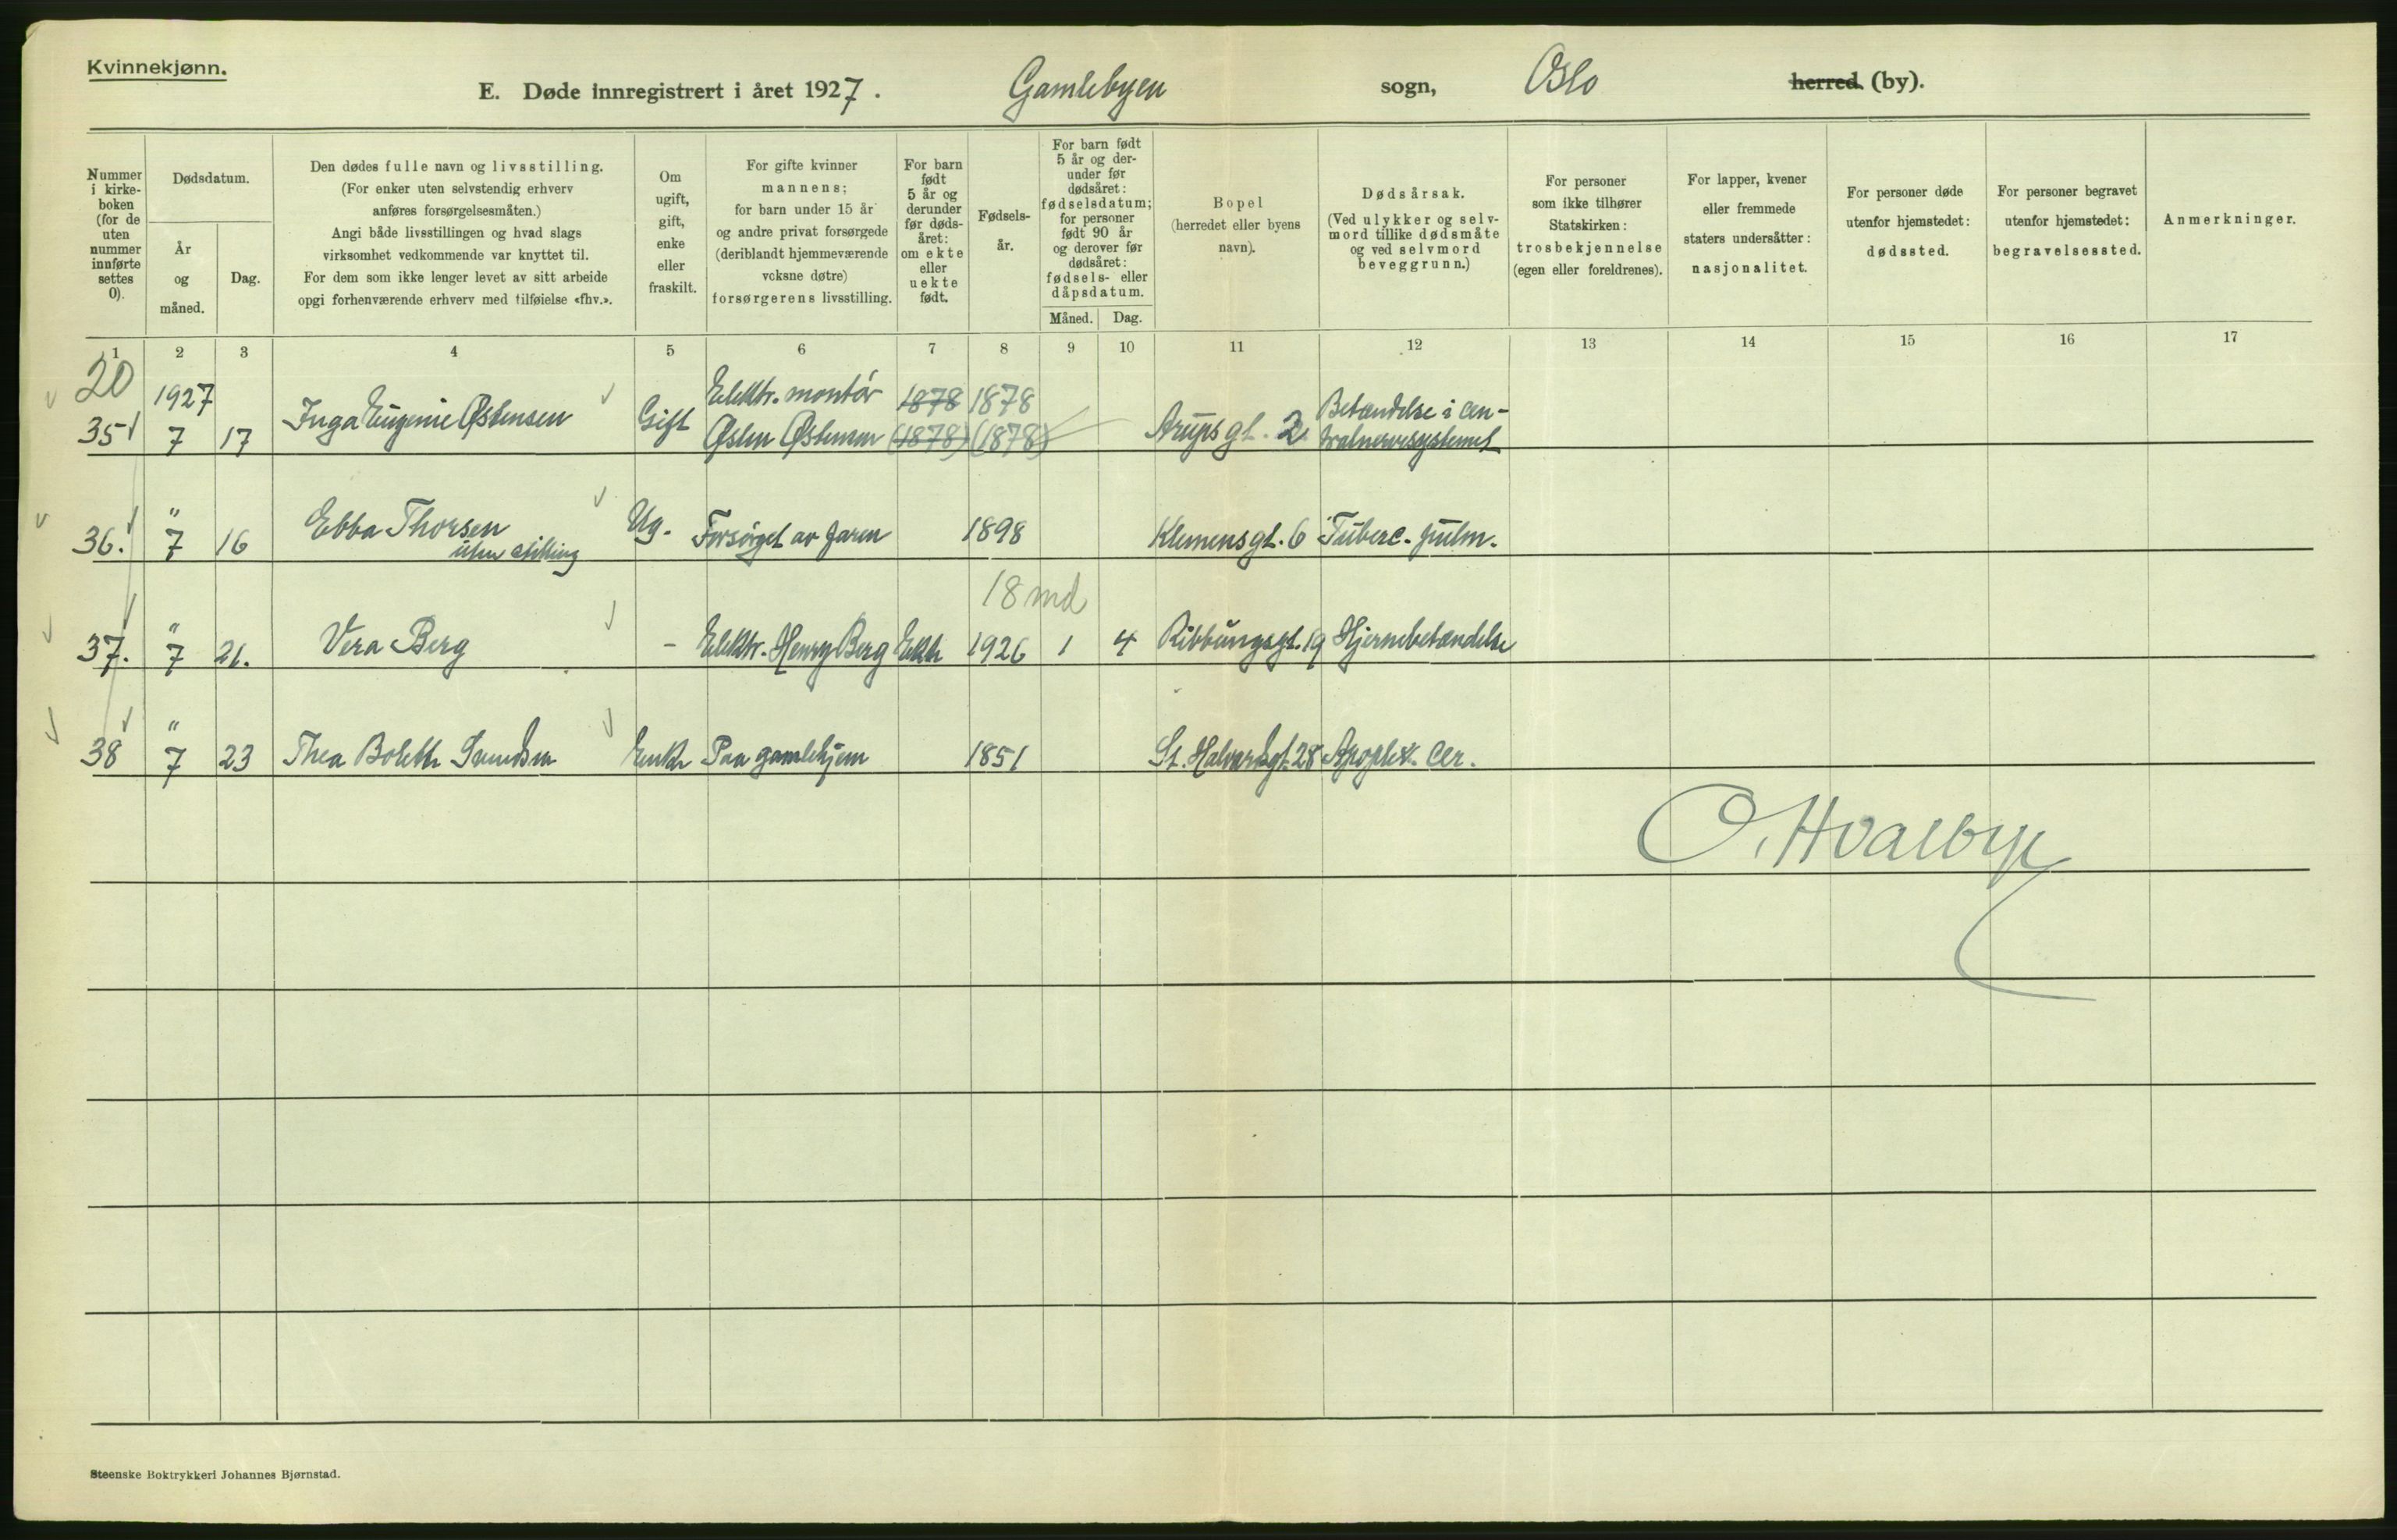 Kvinnekjønn.
E. Døde innregistrert i året 1927. Gamlebyen sogn, Oslo herred. (by).
Nummer i kirke-boken (for de uten nummer innførte settes 0).
Dødsdatum.
År og måned.
Dag.
Den dødes fulle navn og livsstilling.
(For enker uten selvstendig erhverv
anføres forsørgelsesmåten.)
Angi både livsstillingen og hvad slags
virksomhet vedkommende var knyttet til.
For dem som ikke lenger levet av sitt arbeide
opgi forhenværende erhverv med tilføielse «fhv.».
Om
ugift,
gift,
enke
eller
fraskilt.
For gifte kvinner
mannens;
for barn under 15 år
og andre privat forsørgede
(deriblandt hjemmeværende
voksne døtre)
forsørgerens livsstilling.
For barn
født
5 år og
derunder
før døds-
året:
om ekte
eller
uekte
født.
Fødsels-
år.
For barn født
5 år og der-
under før
dødsåret:
fødselsdatum;
for personer
født 90 år
og derover før
dødsåret:
fødsels- eller
dåpsdatum.
Måned. Dag.
Bopel
(herredet eller byens
navn).
Dødsårsak.
(Ved ulykker og selv-
mord tillike dødsmåte
og ved selvmord
beveggrunn.)
For personer
som ikke tilhører
Statskirken:
trosbekjennelse
(egen eller foreldrenes).
For lapper, kvener
eller fremmede
staters undersåtter:
nasjonalitet.
For personer døde
utenfor hjemstedet:
dødssted.
For personer begravet
utenfor hjemstedet:
begravelsessted.
Anmerkninger.
1 2 3 4 5 6 7 8 9 10 11 12 13 14 15 16 17
20 1927 Elektr. montör 1878 1878 Betændelse i cen-
35 7 17 Inga Eugenie Østensen Gift Østen Østensen (1878) (1878) Arupsgt. 2 tralnervesystemet
36. " 7 16 Ebba Thorsen Ug. Forsörget av faren 1898 Klemensgt. 6 Tuberc. pulm.
uten stilling
18 md
37. " 7 21. Vera Berg - Elektr. Henry Berg Ekte 1926 1 4 Ribbungsgt. 19 Hjernebetændelse
38 " 7 23 Thea Bolette Svendsen Enke Paa gamlehjem 1851 St. Halvardsgt. 28 Apoplex. cer.
O. Hvalbye
Steenske Boktrykkeri Johannes Bjørnstad.